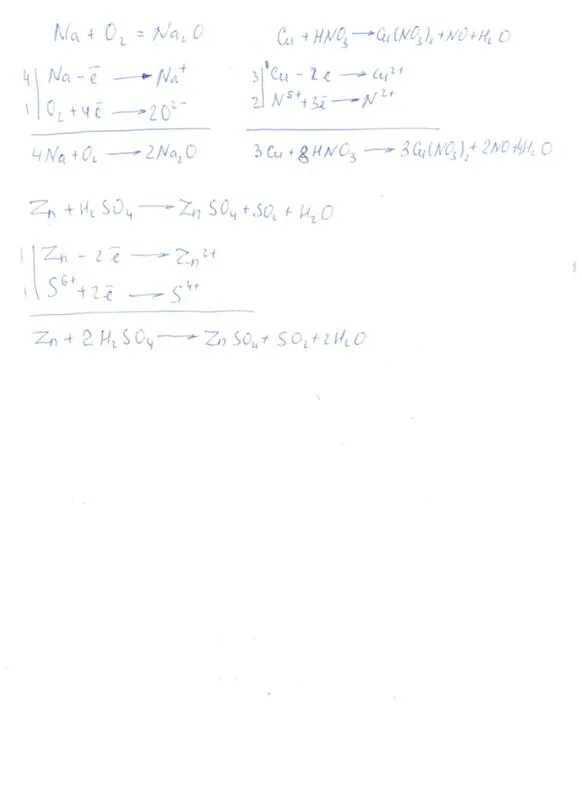 Na + O₂ = Na₂O
4 | Na - ē → Na⁺
1 | O₂ + 4ē → 2O²⁻
4Na + O₂ → 2Na₂O
Cu + HNO₃ → Cu(NO₃)₂ + NO + H₂O
3 | Cu - 2e → Cu²⁺
2 | N⁵⁺ + 3ē → N²⁺
3Cu + 8HNO₃ → 3Cu(NO₃)₂ + 2NO + 4H₂O
Zn + H₂SO₄ → ZnSO₄ + SO₂ + H₂O
1 | Zn - 2ē → Zn²⁺
1 | S⁶⁺ + 2ē → S⁴⁺
Zn + 2H₂SO₄ → ZnSO₄ + SO₂ + 2H₂O